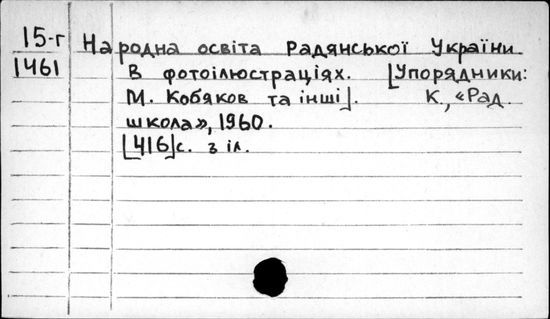 15-г
1461
Народна освіта Радянської України
в фотоілюстраціях. [Упорядники:
М. Кобяков та інші]. К., «Рад.
школа», 1960.
[416]с. з іл.